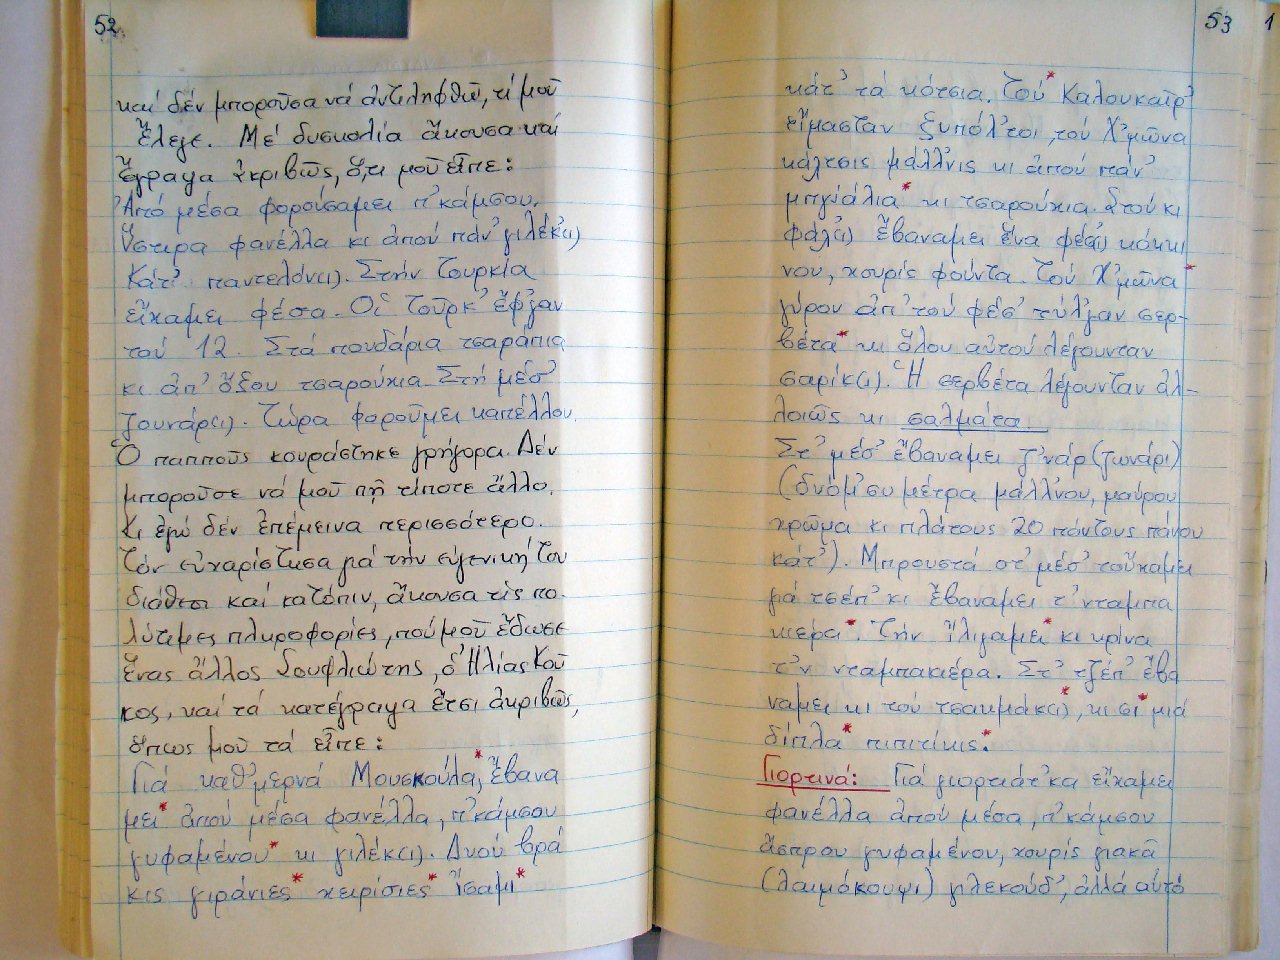 52
καί δέν μποροῦσα νά ἀντιληφθῶ, τί μοῦ
ἔλεγε. Μέ δυσκολία ἄκουσα καί
ἔγραψα ἀκριβῶς, ὅ,τι μοῦ εἶπε:
Ἀπό μέσα φορούσαμει π'κάμσου.
Ὕστιρα φανέλλα κι ἀπού πάν' γιλέκ(ι)
Κάτ' παντελόν(ι). Στήν Τουρκία
εἴχαμει φέσα. Οἱ Τοῦρκ' ἔφ'γαν
τού 12. Στά πουδάρια τσαράπια
κι ἀπ' ὄξου τσαρούχια. Στή μέσ'
ζουνάρ(ι). Τώρα φοροῦμει καπέλλου.
Ὁ παπποῦς κουράστηκε γρήγορα. Δέν
μποροῦσε νά μοῦ πῆ τίποτε ἄλλο.
Κι ἐγώ δέν ἐπέμεινα περισσότερο.
Τόν εὐχαρίστησα γιά τήν εὐγενική του
διάθεσι καί κατόπιν, ἄκουσα τίς πο-
λύτιμες πληροφορίες, πού μοῦ ἔδωσε
ἕνας ἄλλος Σουφλιώτης, ὁ Ἠλίας Κού
κος, καί τά κατέγραψα ἔτσι ἀκριβῶς,
ὅπως μοῦ τά εἶπε:
Γιά καθ'μερνά Μουσκούλα*, ἔβανα
μει* ἀπού μέσα φανέλλα, π'κάμσου
γυφαμένου* κι γιλέκ(ι). Δυού βρά
κις γιράνιες* χειρίσιες* ἴσαμι*
53
1
κάτ' τά κότσια. Τού* Καλουκαίρ'
εἴμασταν ξυπόλ'τοι, τού Χ'μῶνα
κάλτσις μάλλ'νις κι ἀπού πάν'
μπγιάλια* κι τσαρούχια. Στού κι
φάλ(ι) ἔβαναμει ἕνα φέσ(ι) κόκκι
νου, χουρίς φούντα. Τού Χ'μῶνα*
γύρου ἀπ' τού φέσ' τύλ'γαν σερ-
βέτα* κι ὅλου αὐτού λέγουνταν
σαρίκ(ι). Ἡ σερβέτα λέγουνταν ἀλ-
λοιῶς κι σαλμάτα.
Στ' μέσ' ἔβαναμει ζ'νάρ (ζωνάρι)
(δυόμ'συ μέτρα μάλλ'νου, μαύρου
χρῶμα κι πλάτους 20 πόντους πάνου
κάτ'). Μπρουστά στ' μέσ' τοὔχαμει
γιά τσέπ' κι ἔβαναμει τ' νταμπα
κιέρα*. Τήν ἴλιγαμει* κι κρίνα
τ'ν νταμπακιέρα. Στ' τζέπ' ἔβα
ναμει κι τού τσακμάκ(ι)*, κι σι* μιά
δίπλα* πιπιτίκις*.
Γιορτινά: Γιά γιορτιάτ'κα εἴχαμει
φανέλλα ἀπού μέσα, π'κάμσου
ἄσπρου γυφαμένου, χουρίς γιακᾶ
(λαιμόκουψι) γιλεκούδ', ἀλλά αὐτό